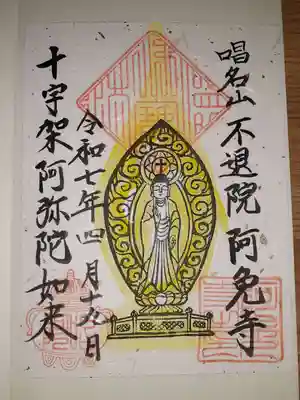 唱名山 不退院 阿免寺
令和七年四月十八日
十字架阿弥陀如来